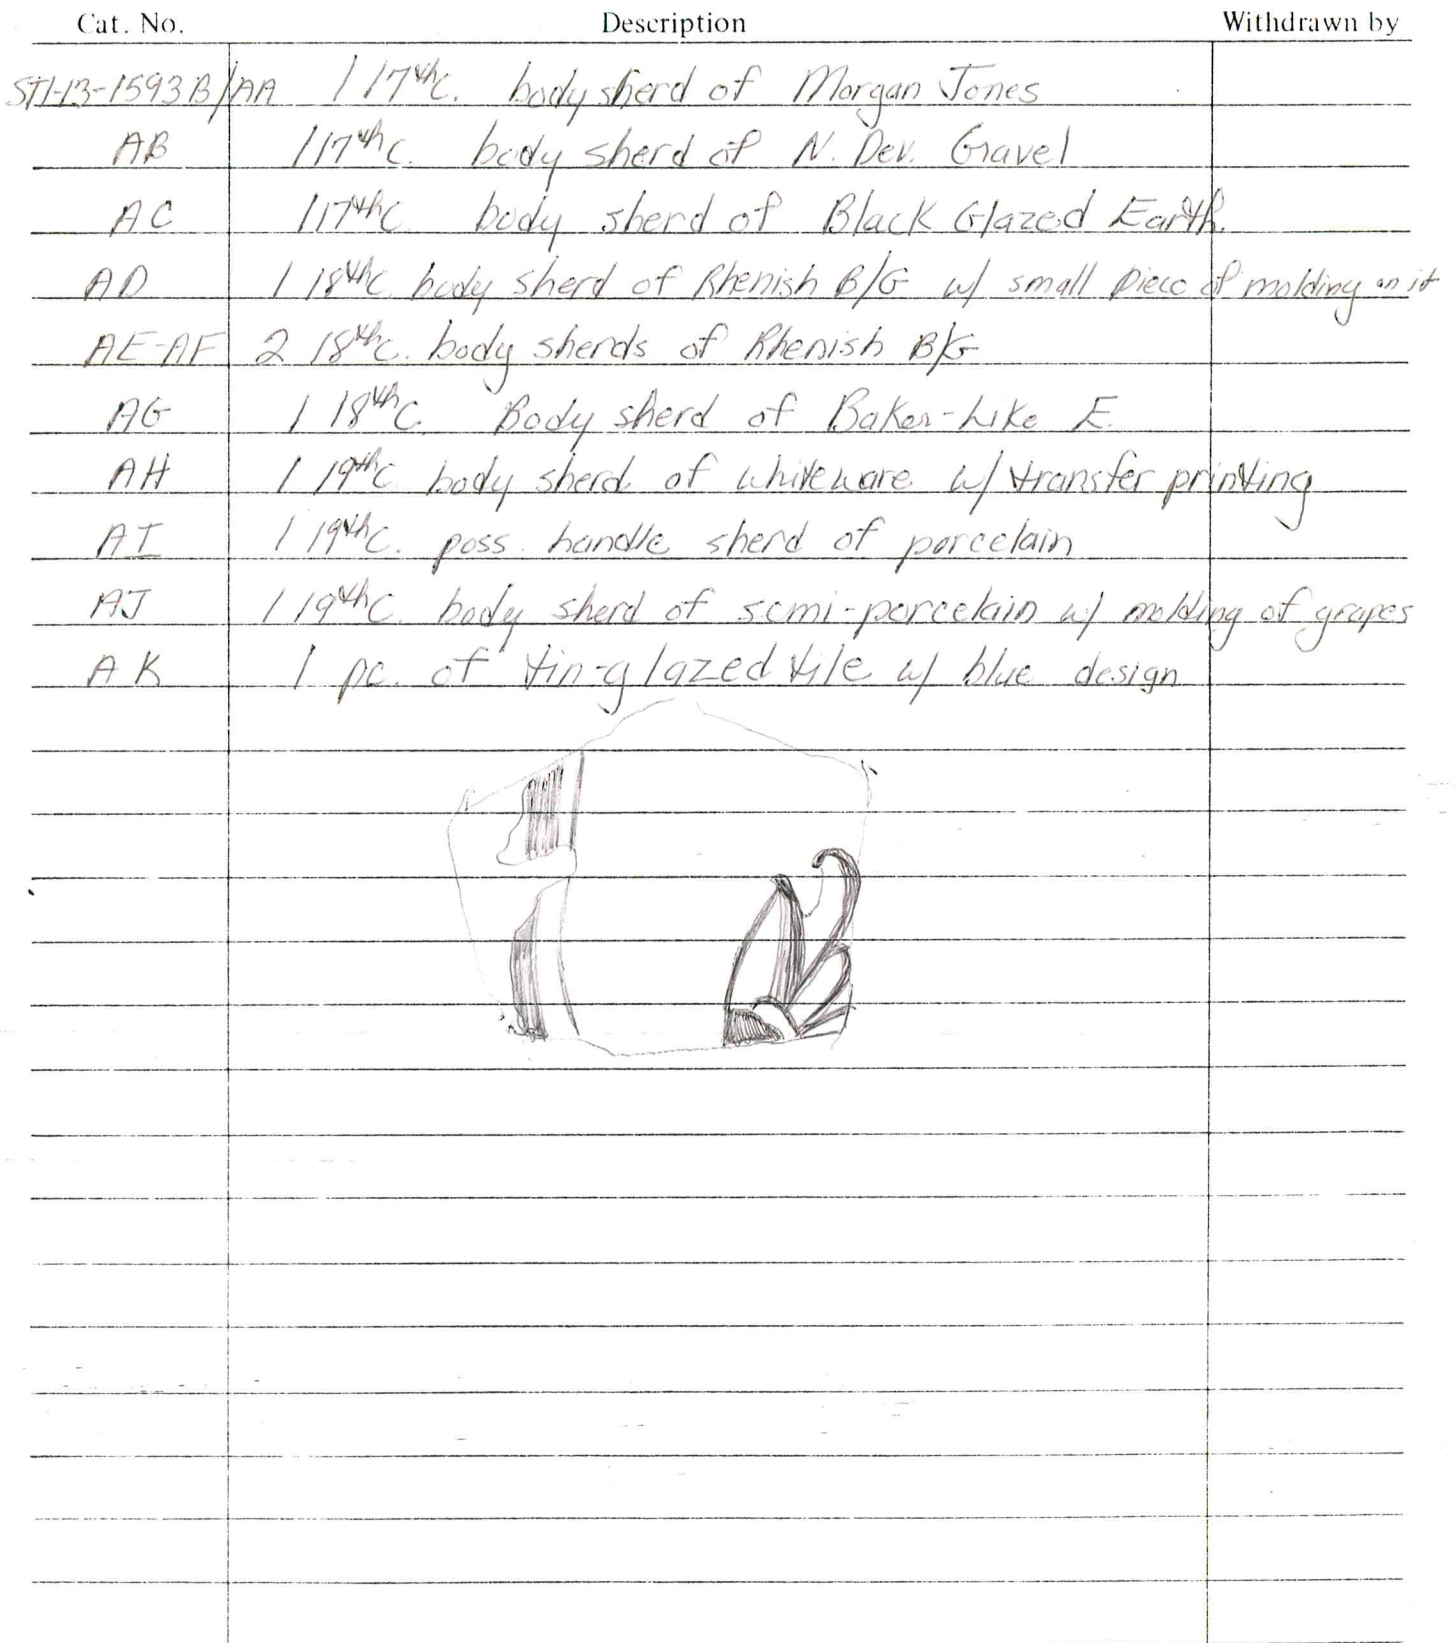 Cat. No. Description Withdrawn by
ST1-13-1593B/AA 1 17thC. body sherd of Morgan Jones
AB 1 17thC. body sherd of N. Dev. Gravel
AC 1 17thC. body sherd of Black Glazed Earth.
AD 1 18thC. body sherd of Rhenish B/G w/ small piece of molding on it
AE-AF 2 18thC. body sherds of Rhenish B/G
AG 1 18thC. Body sherd of Baker-Like E.
AH 1 19thC body sherd of whiteware w/ transfer printing
AI 1 19thC. poss. handle sherd of porcelain
AJ 1 19thC. body sherd of semi-porcelain w/ molding of grapes
AK 1 pc. of tin-glazed tile w/ blue design